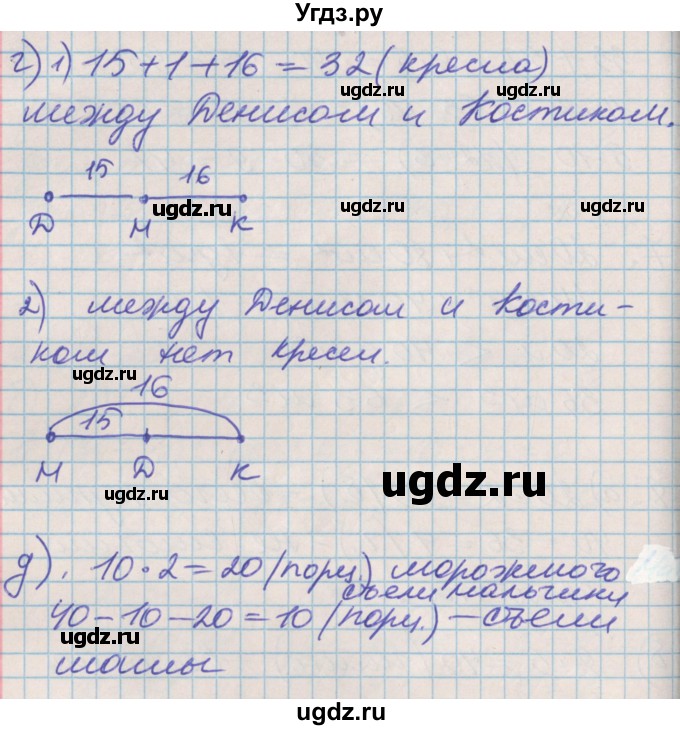 Угдз.ру
г) 1) 15+1+16=32 (кресла)
ugdz.ru ugdz.ru
между Денисом и Костиком.
15 16
ugdz.ru ugdz.ru ugdz.ru
Д М К
2) между Денисом и Кости-
ком нет кресел.
ugdz.ru
16
15
М Д К
ugdz.ru
ugdz.ru
д). 10·2=20 (порц.) мороженого
съели мальчики
40-10-20=10 (порц.) – съели
ugdz.ru ugdz.ru
мамы
ugdz.ru